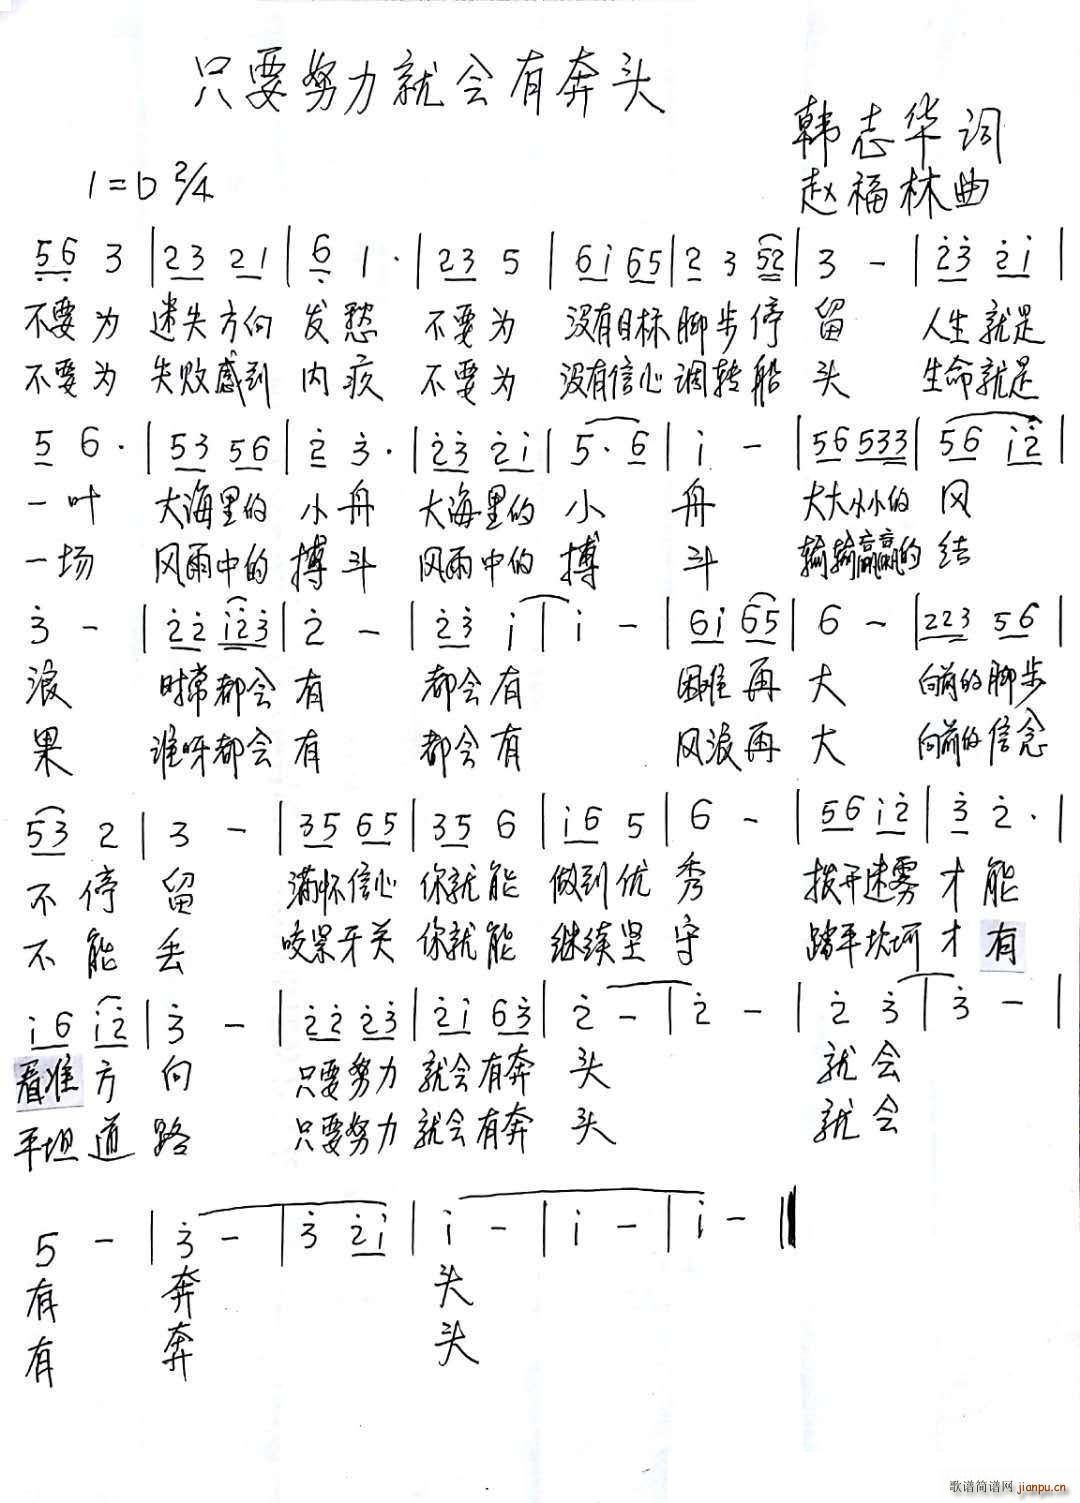 只要努力就会有奔头
韩志华词
1=D 2/4
赵福林曲
56 3 | 23 21 | 6 1· | 23 5 | 6i 65 | 2 3 52 | 3 - | 23 2i |
不要为 迷失方向 发愁 不要为 没有目标 脚步停 留 人生就是
不要为 失败感到 内疚 不要为 没有信心 调转船 头 生命就是
5 6· | 53 56 | 2 3· | 23 2i | 5· 6 | i - | 56 533 | 56 i2 |
一叶 大海里的 小舟 大海里的 小 舟 大大小小的 风
一场 风雨中的 搏斗 风雨中的 搏 斗 输输赢赢的 结
3 - | 22 i23 | 2 - | 23 i | i - | 6i 65 | 6 - | 223 56 |
浪 时常都会 有 都会有 困难再 大 向前的脚步
果 谁呀都会 有 都会有 风浪再 大 向前的信念
53 2 | 3 - | 35 65 | 35 6 | i6 5 | 6 - | 56 i2 | 3 2· |
不停 留 满怀信心 你就能 做到优 秀 拨开迷雾 才能
不能 丢 咬紧牙关 你就能 继续坚 守 踏平坎坷 才有
i6 i2 | 3 - | 22 23 | 2i 63 | 2 - | 2 - | 2 3 | 3 - |
看准方 向 只要努力 就会有奔 头 就会
平坦道 路 只要努力 就会有奔 头 就会
5 - | 3 - | 3 2i | i - | i - | i - ‖
有 奔 头
有 奔 头
歌谱简谱网 jianpu.cn